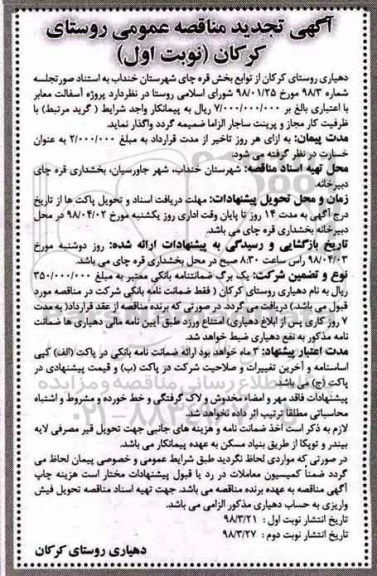 آگهی تجدید مناقصه عمومی روستای
کرکان (نوبت اول)
دهیاری روستای کرکان از توابع بخش قره چای شهرستان خنداب به استناد صورتجلسه
شماره ۹۸/۳ مورخ ۹۸/۰۱/۲۵ شورای اسلامی روستا در نظردارد پروژه آسفالت معابر
با اعتباری بالغ بر ۷/۰۰۰/۰۰۰/۰۰۰ ریال به پیمانکار واجد شرایط ( گرید مرتبط) با
ظرفیت کار مجاز و پرینت ساجار الزاما ضمیمه گردد واگذار نماید.
مدت پیمان: به ازای هر روز تاخیر از مدت قرارداد به مبلغ ۲/۰۰۰/۰۰۰ به عنوان
خسارت در نظر گرفته می شود.
محل تهیه اسناد مناقصه: شهرستان خنداب، شهر جاورسیان، بخشداری قره چای
دبیرخانه.
زمان و محل تحویل پیشنهادات: مهلت دریافت اسناد و تحویل پاکت ها از تاریخ
درج آگهی به مدت ۱۴ روز تا پایان وقت اداری روز یکشنبه مورخ ۹۸/۰۴/۰۲ در محل
دبیرخانه بخشداری قره چای می باشد.
تاریخ بازگشایی و رسیدگی به پیشنهادات ارائه شده: روز دوشنبه مورخ
۹۸/۰۴/۰۳ راس ساعت ۸:۳۰ صبح در محل بخشداری قره چای می باشد.
نوع و تضمین شرکت: یک برگ ضمانتنامه بانکی معتبر به مبلغ ۳۵۰/۰۰۰/۰۰۰
ریال به نام دهیاری روستای کرکان ( فقط ضمانت نامه بانکی شرکت در مناقصه مورد
قبول می باشد) دریافت می گردد. در صورتی که برنده مناقصه از عقد قرارداد( به مدت
۷ روز کاری پس از ابلاغ دهیاری) امتناع ورزد طبق آیین نامه مالی دهیاری ها ضمانت
نامه مذکور به نفع دهیاری ضبط خواهد شد.
مدت اعتبار پیشنهاد: ۳ ماه خواهد بود ارائه ضمانت نامه بانکی در پاکت (الف) کپی
اساسنامه و آخرین تغییرات و صلاحیت شرکت در پاکت (ب) و قیمت پیشنهادی در
پاکت (ج) می باشد.
پیشنهادات فاقد مهر و امضاء مخدوش و لاک گرفتگی و خط خورده و مشروط و اشتباه
محاسباتی مطلقا ترتیب اثر داده نخواهد شد.
لازم به ذکر است اخذ ضمانت نامه و هزینه های جانبی جهت تحویل قیر مصرفی لایه
بیندر و توپکا از طریق بنیاد مسکن به عهده پیمانکار می باشد.
در صورتی که مواردی لحاظ نگردید طبق شرایط عمومی و خصوصی پیمان لحاظ می
گردد ضمناً کمیسیون معاملات در رد یا قبول پیشنهادات مختار است هزینه چاپ
آگهی مناقصه به عهده برنده مناقصه می باشد. جهت تهیه اسناد مناقصه تحویل فیش
واریزی به حساب دهیاری مذکور الزامی می باشد.
تاریخ انتشار نوبت اول : ۹۸/۳/۲۱
تاریخ انتشار نوبت دوم : ۹۸/۳/۲۷
دهیاری روستای کرکان